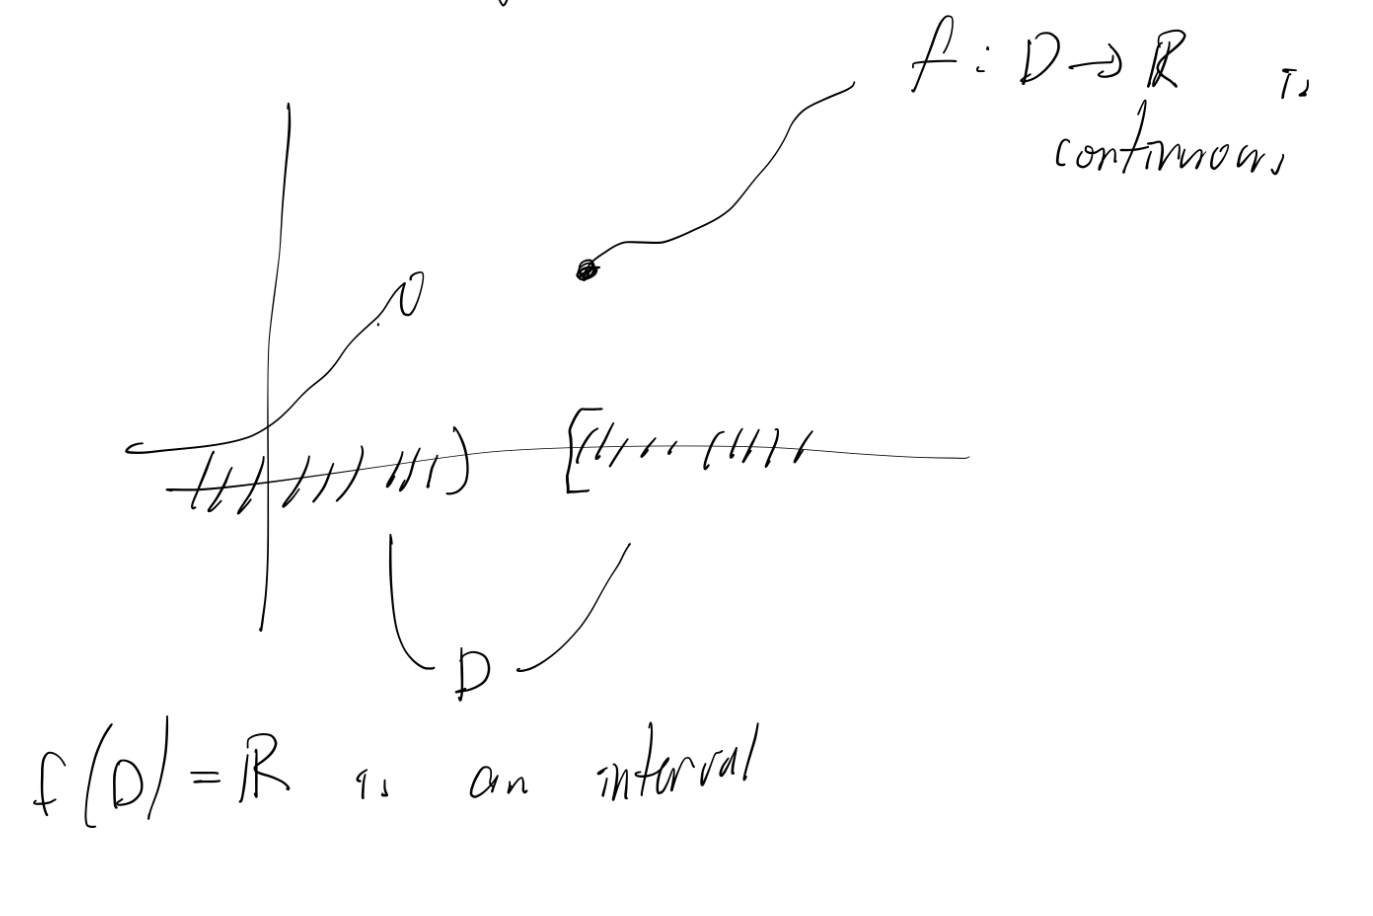 f : D → ℝ is
continuous
D
f(D) = ℝ is an interval